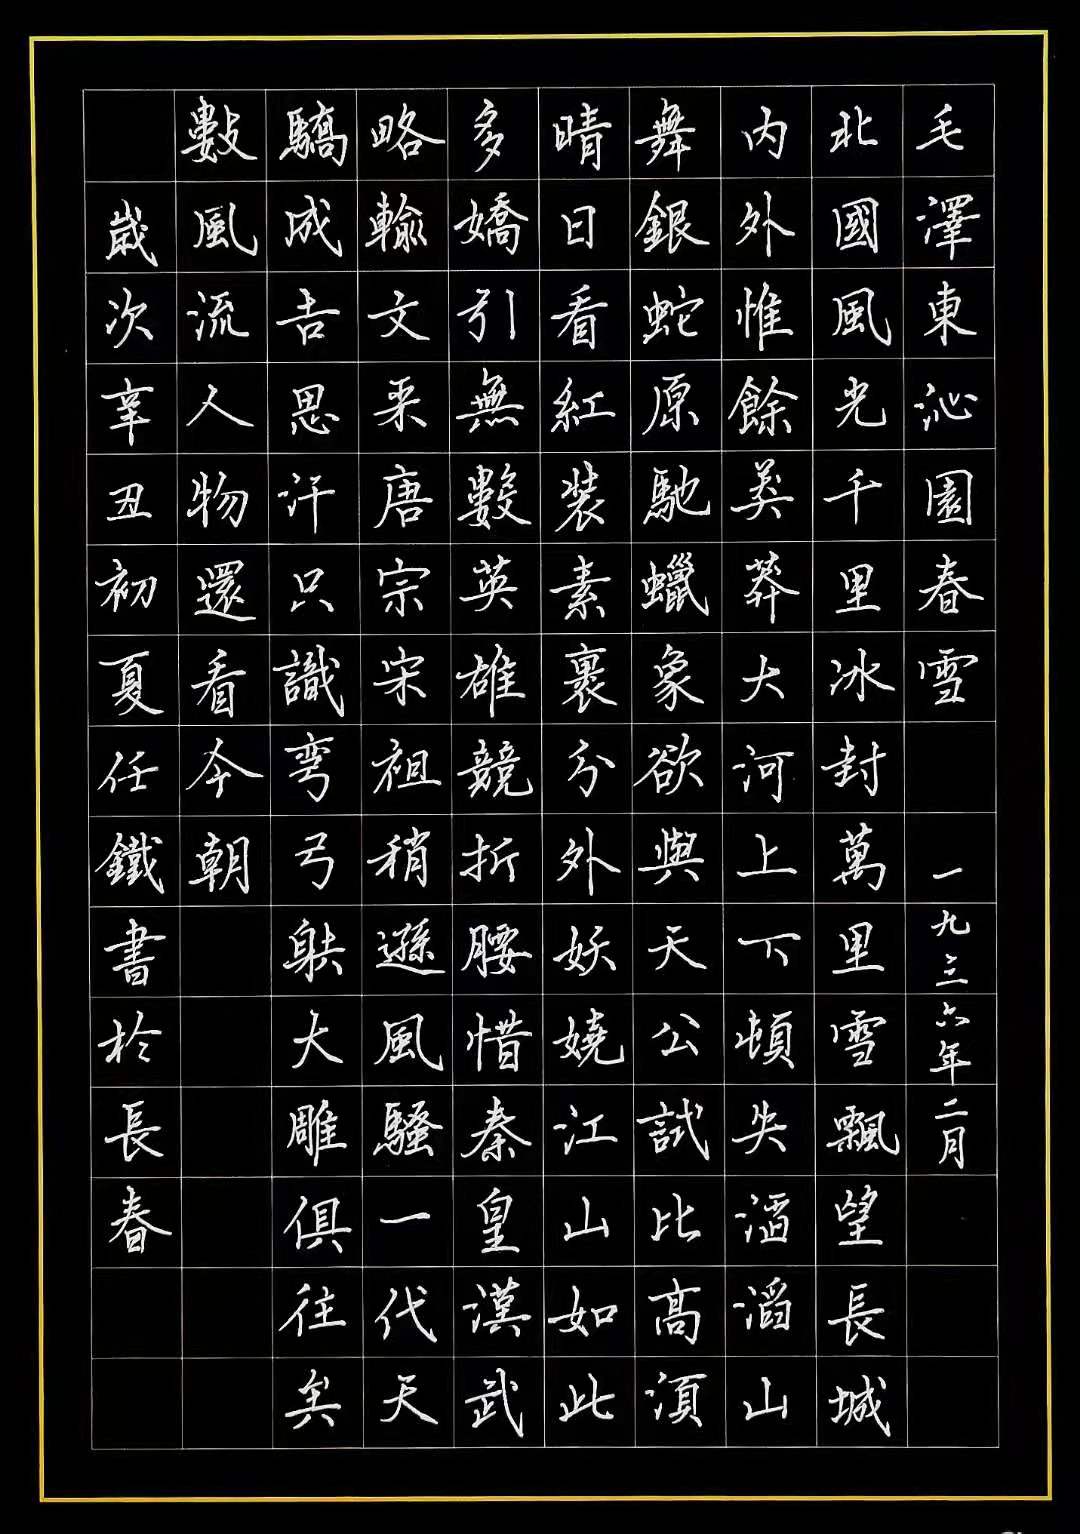 毛澤東沁園春雪 一九三六年二月
北國風光千里冰封萬里雪飄望長城
内外惟餘莽莽大河上下頓失滔滔山
舞銀蛇原馳蠟象欲與天公試比高須
晴日看紅裝素裹分外妖嬈江山如此
多嬌引無數英雄競折腰惜秦皇漢武
略輸文采唐宗宋祖稍遜風騷一代天
驕成吉思汗只識弯弓射大雕俱往矣
數風流人物還看今朝
歲次辛丑初夏任鐵書於長春